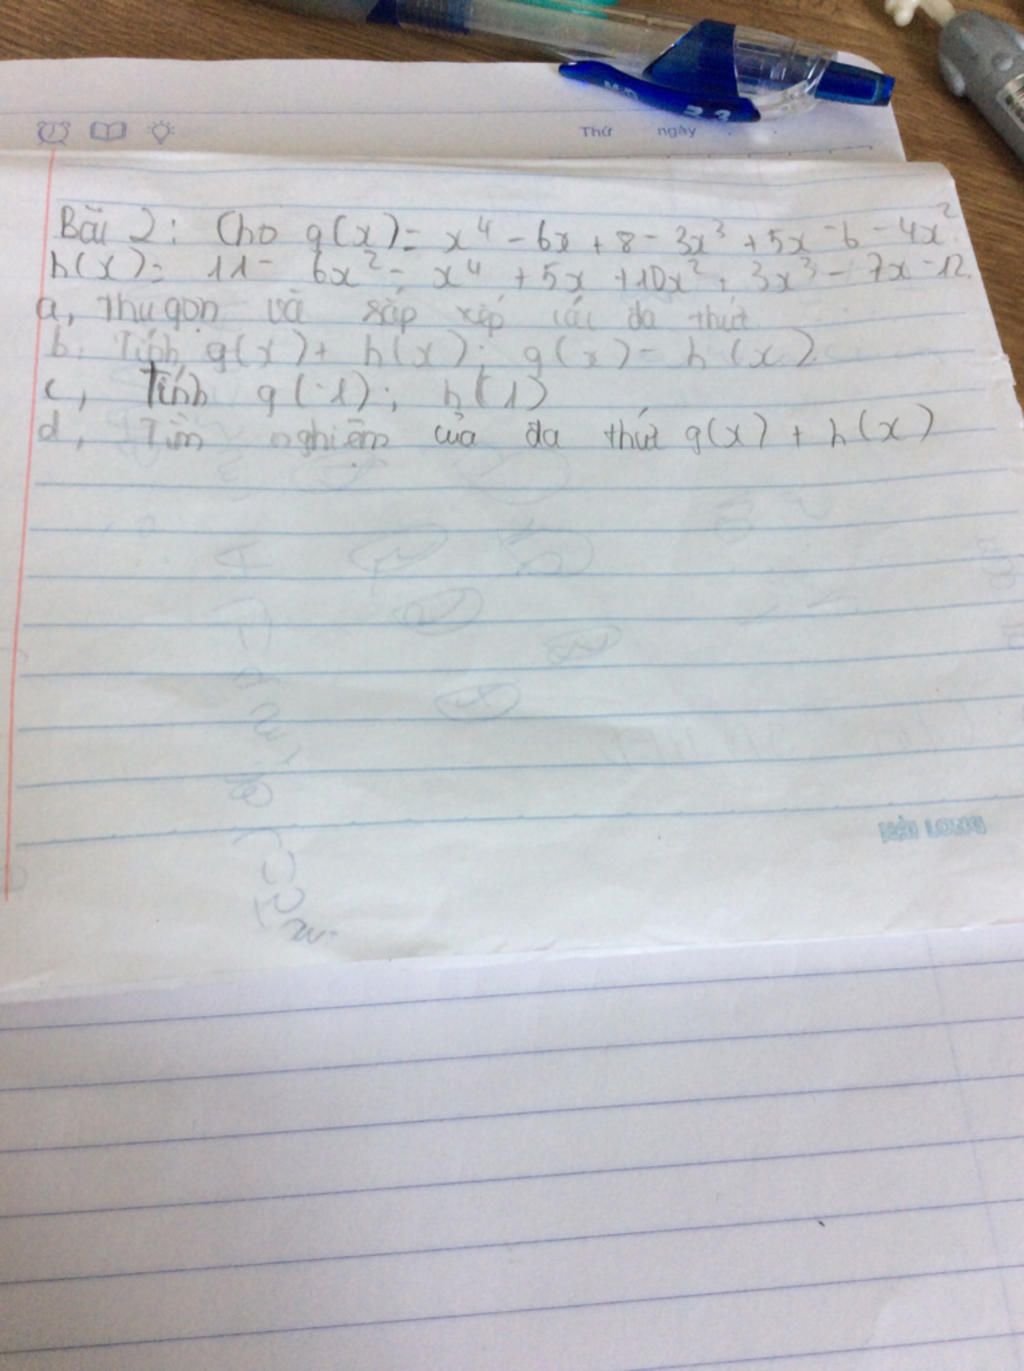 Thứ ngày
Bài 2: Cho g(x) = x⁴ - 6x + 8 - 3x³ + 5x - 6 - 4x².
h(x) = 11 - 6x² - x⁴ + 5x + 10x² + 3x³ - 7x - 12.
a, Thu gọn và sắp xếp các đa thức
b. Tính g(x) + h(x); g(x) - h(x).
c, Tính g(-1); h(1)
d, Tìm nghiệm của đa thức g(x) + h(x)
HẢI LONG